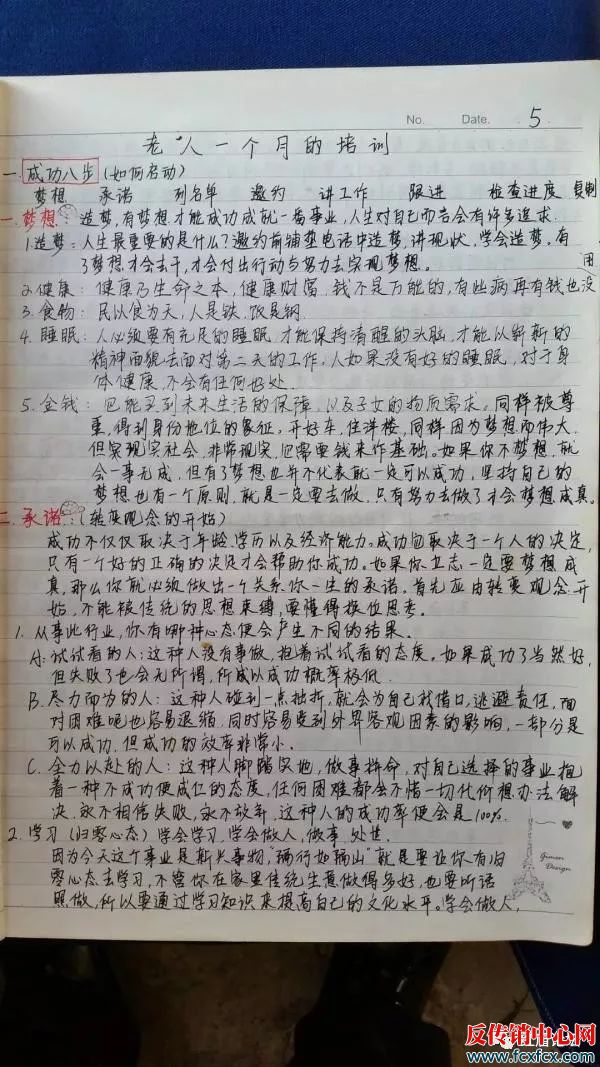 No. Date. 5
老人一个月的培训
一.成功八步(如何启动)
梦想 承诺 列名单 邀约 讲工作 跟进 检查进度 复制
一.梦想:造梦,有梦想才能成功成就一番事业,人生对自己而言会有许多追求.
1.造梦:人生最重要的是什么?邀约前铺垫电话中造梦,讲现状,学会造梦。有
了梦想才会去干,才会付出行动与努力去实现梦想。
用
2.健康: 健康乃生命之本,健康财富,钱不是万能的,有些病再有钱也没
3.食物: 民以食为天,人是铁,饭是钢.
4.睡眠: 人必须要有充足的睡眠,才能保持清醒的头脑,才能以崭新的
精神面貌去面对第二天的工作,人如果没有好的睡眠,对于身
体健康,不会有任何好处.
5.金钱: 它能买到未来生活的保障,以及子女的物质需求。同样被尊
重,得到身份地位的象征,开好车,住洋楼,同样因为梦想而伟大.
但实现实社会,非常现实,它需要钱来作基础。如果你不梦想,就
会一事无成,但有了梦想也并不代表就一定可以成功,坚持自己的
梦想也有一个原则,就是一定要去做,只有努力去做了才会梦想成真。
二.承诺:(转变观念的开始)
成功不仅仅取决于年龄,学历以及经济能力。成功它取决于一个人的决定,
只有一个好的正确的决定才会帮助你成功。如果你立志一定要梦想成
真,那么你就必须做出一个关系你一生的承诺。首先应由转变观念开
始,不能被传统的思想束缚,要懂得换位思考。
1.从事此行业,你有哪种心态便会产生不同的结果。
A.试试看的人:这种人没有事做,抱着试试看的态度。如果成功了当然好,
但失败了也会无所谓,所成以成功概率极低.
B.尽力而为的人: 这种人碰到一点挫折,就会为自己找借口,逃避责任,面
对困难呢也容易退缩,同时容易受到外界客观因素的影响,一部分是
可以成功,但成功的效率非常小.
C.全力以赴的人: 这种人脚踏实地,做事拼命,对自己选择的事业抱
着一种不成功便成仁的态度,任何困难都会不惜一切代价想办法解
决,永不相信失败,永不放弃,这种人的成功率便会是100%.
2.学习(归零心态)学会学习,学会做人,做事,处世.
因为今天这个事业是新兴事物"隔行如隔山"就是要让你有归
零心态去学习,不管你在家里传统生意做得多好,也要听话
照做,所以要通过学习知识来提高自己的文化水平。学会做人,
反传销中心网
www.fcxfcx.com